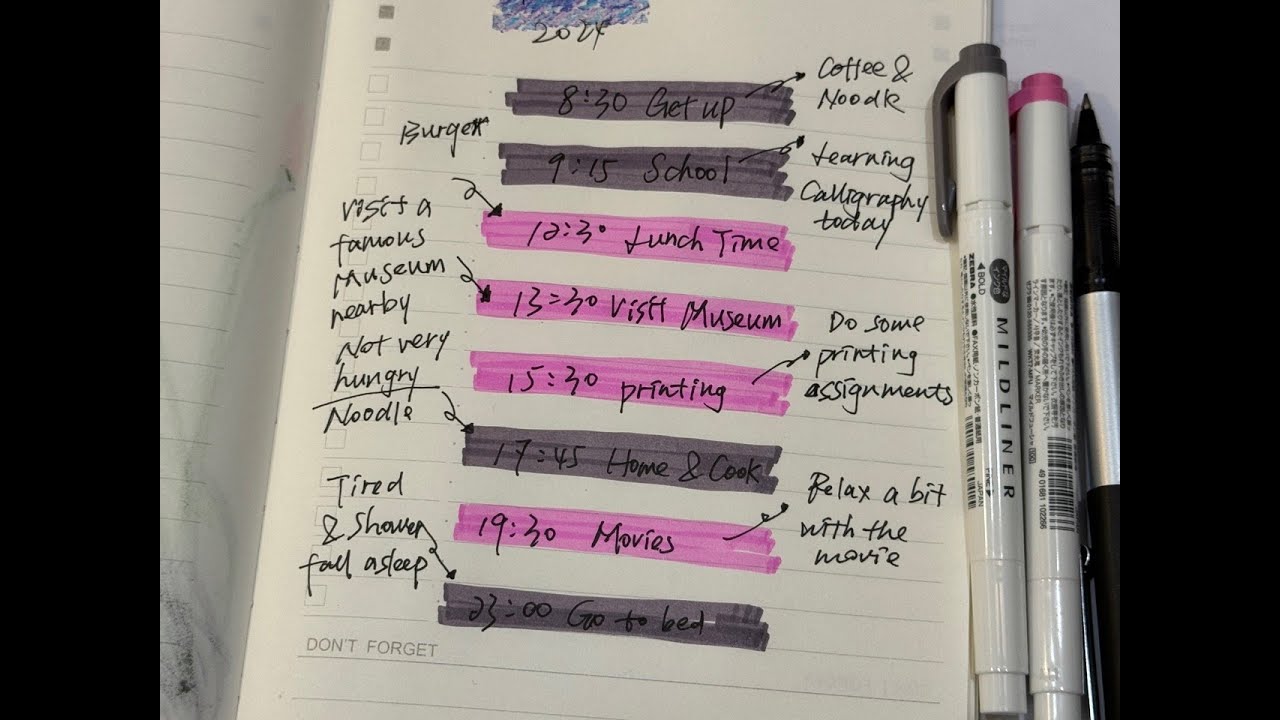 2024
8:30 Get up
Coffee &
Noodle
Burger
9:15 School
Learning
Calligraphy
today
12:30 Lunch Time
Visit a
famous
Museum
nearby
13:30 Visit Museum
15:30 printing
Do some
printing
assignments
Not very
hungry
Noodle
17:45 Home & Cook
19:30 Movies
Relax a bit
with the
movie
Tired
& Shower
fall asleep
23:00 Go to bed
DON'T FORGET
ZEBRA
BOLD
MILDLINER
FINE
JAPAN